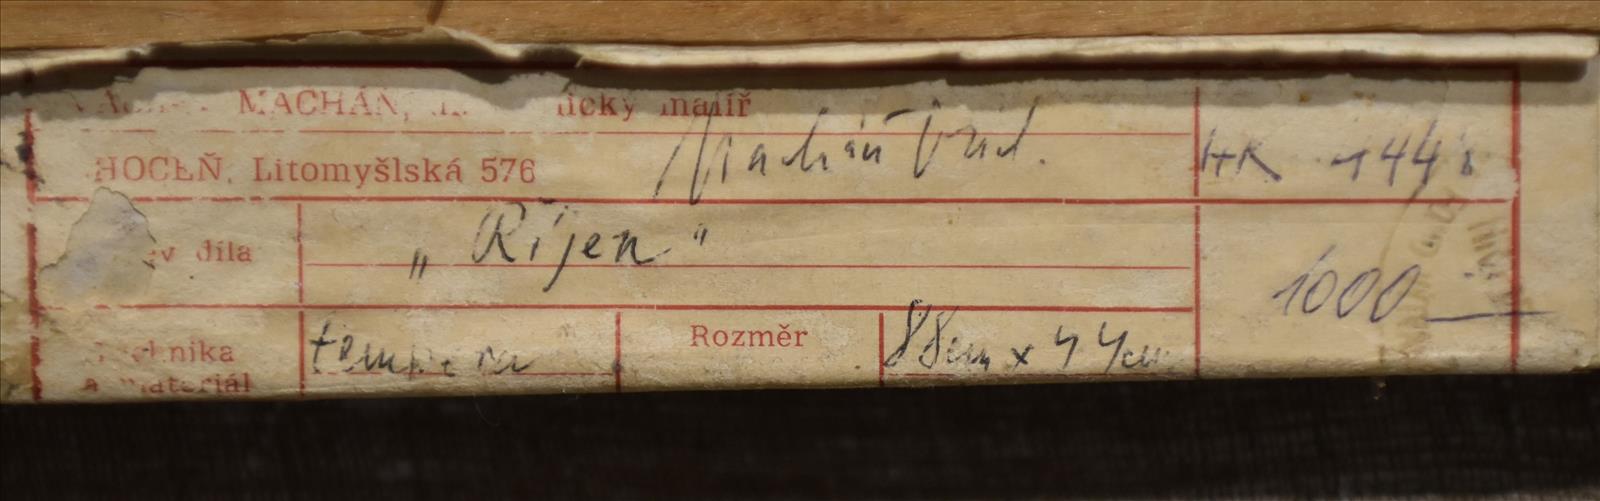 MACHÁŇ, nický malíř
HOCEŇ, Litomyšlská 576
Macháň
HK
ev díla
„Říjen"
1000
Technika
a materiál
tempera
Rozměr
88cm x 44cm